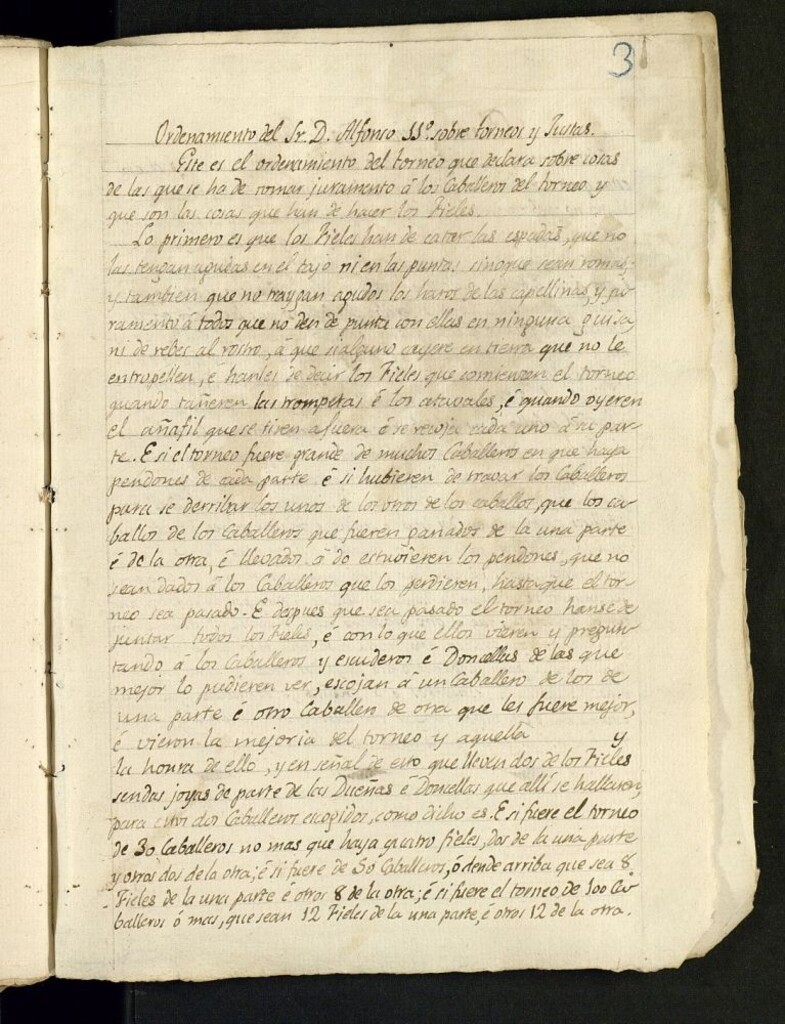 3
Ordenamiento del Sr. D. Alfonso 11º sobre torneos y Justas.
Este es el ordenamiento del torneo que declara sobre cosas
de las que se ha de tomar juramento á los Caballeros del torneo y
que son las cosas que han de hacer los Fieles.
Lo primero es que los Fieles han de catar las espadas, que no
las tengan agudas en el tajo ni en las puntas sinoque sean romas,
y tambien que no traygan agudos los haros de las capellinas, y ju-
ramento á todos que no den de punta con ellas en ninguna guisa
ni de rebes al rostro, á que si alguno cayere en tierra que no le
entropellen, e hanles de decir los Fieles que comienzen el torneo
quando tañeren las trompetas é los atavales, é quando oyeren
el añafil que se tiren afuera é se recoja cada uno á su par-
te. E si el torneo fuere grande de muchos Caballeros en que haya
pendones de cada parte é si hubieren de travar los Caballeros
para se derribar los unos de los otros de los caballos, que los ca-
ballos de los Caballeros que fueren ganados de la una parte
é de la otra, é llevados á do estuvieren los pendones, que no
sean dados á los Caballeros que los perdieren, hasta que el tor-
neo sea pasado. E despues que sea pasado el torneo hanse de
juntar todos los fieles, é con lo que ellos vieren y pregun-
tando á los Caballeros y escuderos é Doncellas de las que
mejor lo pudieren ver, escojan á un Caballero de los de
una parte é otro Caballero de otra que les fuere mejor,
é vieron la mejoria del torneo y aquella y
la honra de ello, y en señal de esto que lleven dos de los Fieles
sendas joyas de parte de las Dueñas é Doncellas que allí se hallaren,
para dos Caballeros escogidos, como dicho es. E si fuere el torneo
de 30 Caballeros no mas que haya quatro fieles, dos de la una parte
y otros dos de la otra; é si fuere de 50 Caballeros, ó dende arriba que sea 8
Fieles de la una parte é otros 8 de la otra; é si fuere el torneo de 100 Ca-
balleros ó mas, que sean 12 Fieles de la una parte, é otros 12 de la otra.